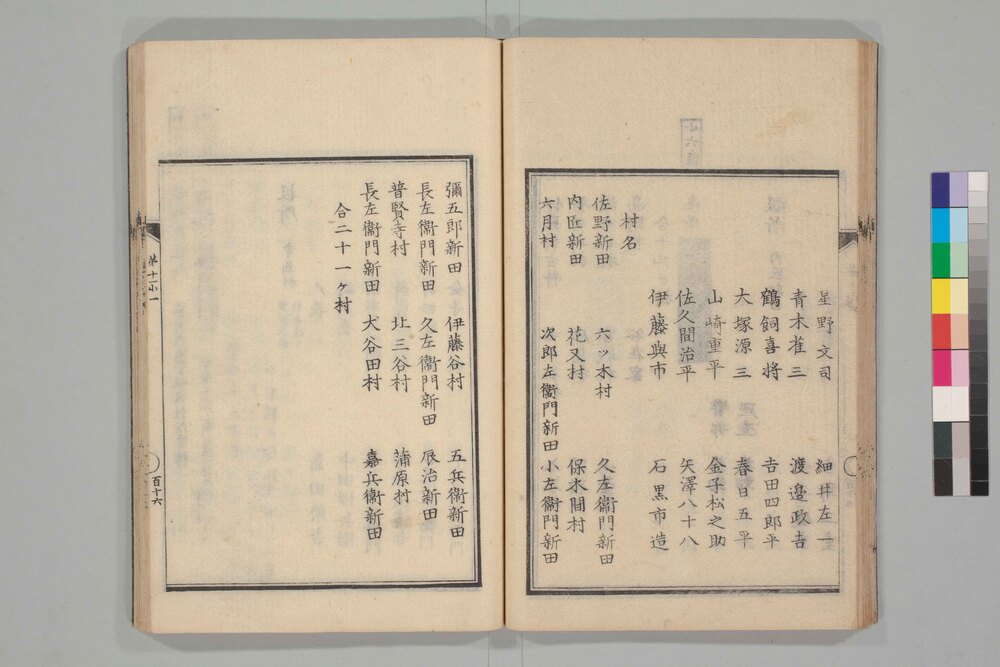 星野文司　細井左一
青木雀三　渡邉政吉
鶴飼喜将　吉田四郎平
大塚源三　春日五平
山崎重平　金子松之助
佐久間治平　矢澤八十八
伊藤與市　石黒市造
村名
佐野新田　六ッ木村　久左衞門新田
内匠新田　花又村　保木間村
六月村　次郎左衞門新田　小左衞門新田
彌五郎新田　伊藤谷村　五兵衞新田
長左衞門新田　久左衞門新田　辰治新田
普賢寺村　北三谷村　蒲原村
長左衞門新田　犬谷田村　嘉兵衞新田
合二十一ヶ村
百十六